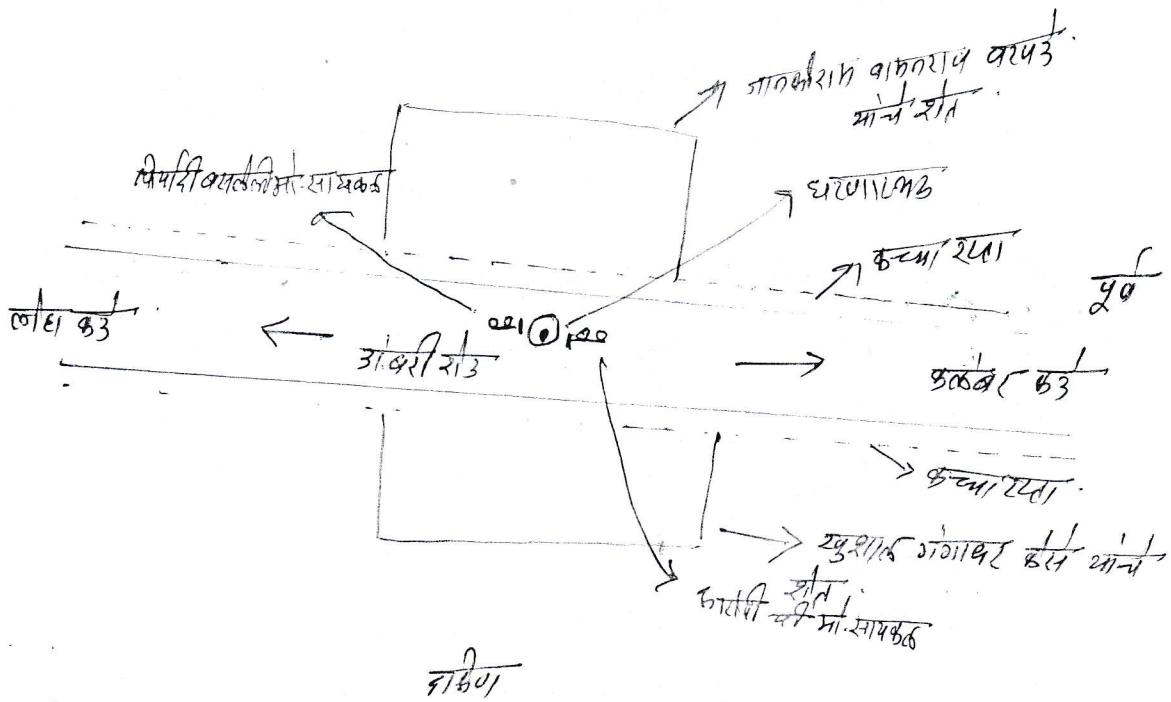 जानकीराम वामनराव वरपडे
यांचे शेत
फिर्यादी बसलेली मो.सायकल
घटणास्थळ
कच्चा रस्ता
पूर्व
लोहा कडे
डांबरी रोड
कलंबर कडे
कच्चा रस्ता
खुशाल गंगाधर यांचे
शेत
आरोपी ची मो.सायकल
दक्षिण